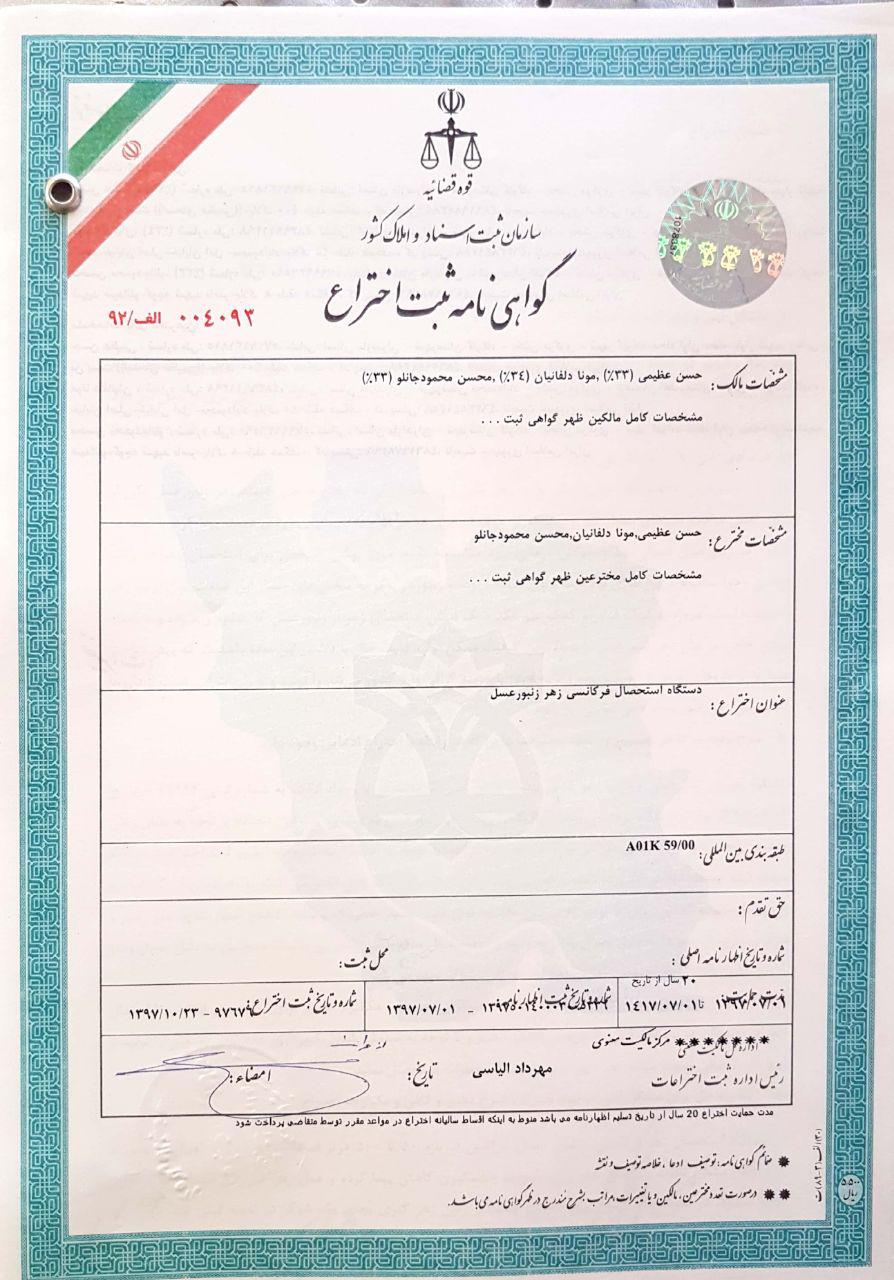 قوه قضائیه
سازمان ثبت اسناد و املاک کشور
گواهی نامه ثبت اختراع
۰۰۴۰۹۳ الف/۹۲
مشخصات مالک: حسن عظیمی (۳۳٪) ,مونا دلفانیان (۳٤٪) ,محسن محمودجانلو (۳۳٪)
مشخصات کامل مالکین ظهر گواهی ثبت . . .
مشخصات مخترع: حسن عظیمی,مونا دلفانیان,محسن محمودجانلو
مشخصات کامل مخترعین ظهر گواهی ثبت . . .
عنوان اختراع: دستگاه استحصال فرکانسی زهر زنبورعسل
طبقه بندی بین المللی: A01K 59/00
حق تقدم:
شماره و تاریخ اظهارنامه اصلی: محل ثبت:
۲۰ سال از تاریخ
۱۳۹۷/۰۷/۰۱ تا ۱٤۱۷/۰۷/۰۱
شماره و تاریخ ثبت اظهارنامه: - ۱۳۹۷/۰۷/۰۱
شماره و تاریخ ثبت اختراع: ۹۷۶۷۹ - ۱۳۹۷/۱۰/۲۳
مرکز مالکیت معنوی
رئیس اداره ثبت اختراعات مهرداد الیاسی تاریخ: امضاء:
مدت حمایت اختراع 20 سال از تاریخ تسلیم اظهارنامه می باشد منوط به اینکه اقساط سالیانه اختراع در مواعد مقرر توسط متقاضی پرداخت شود
✵ ضمائم گواهی نامه: توصیف ادعا، خلاصه توصیف و نقشه
✵ ✵ درصورت تعدد مخترعین، مالکین و یا تغییرات، مراتب بشرح مندرج در ظهر گواهی نامه می باشد.
۵,۵۰۰ ریال